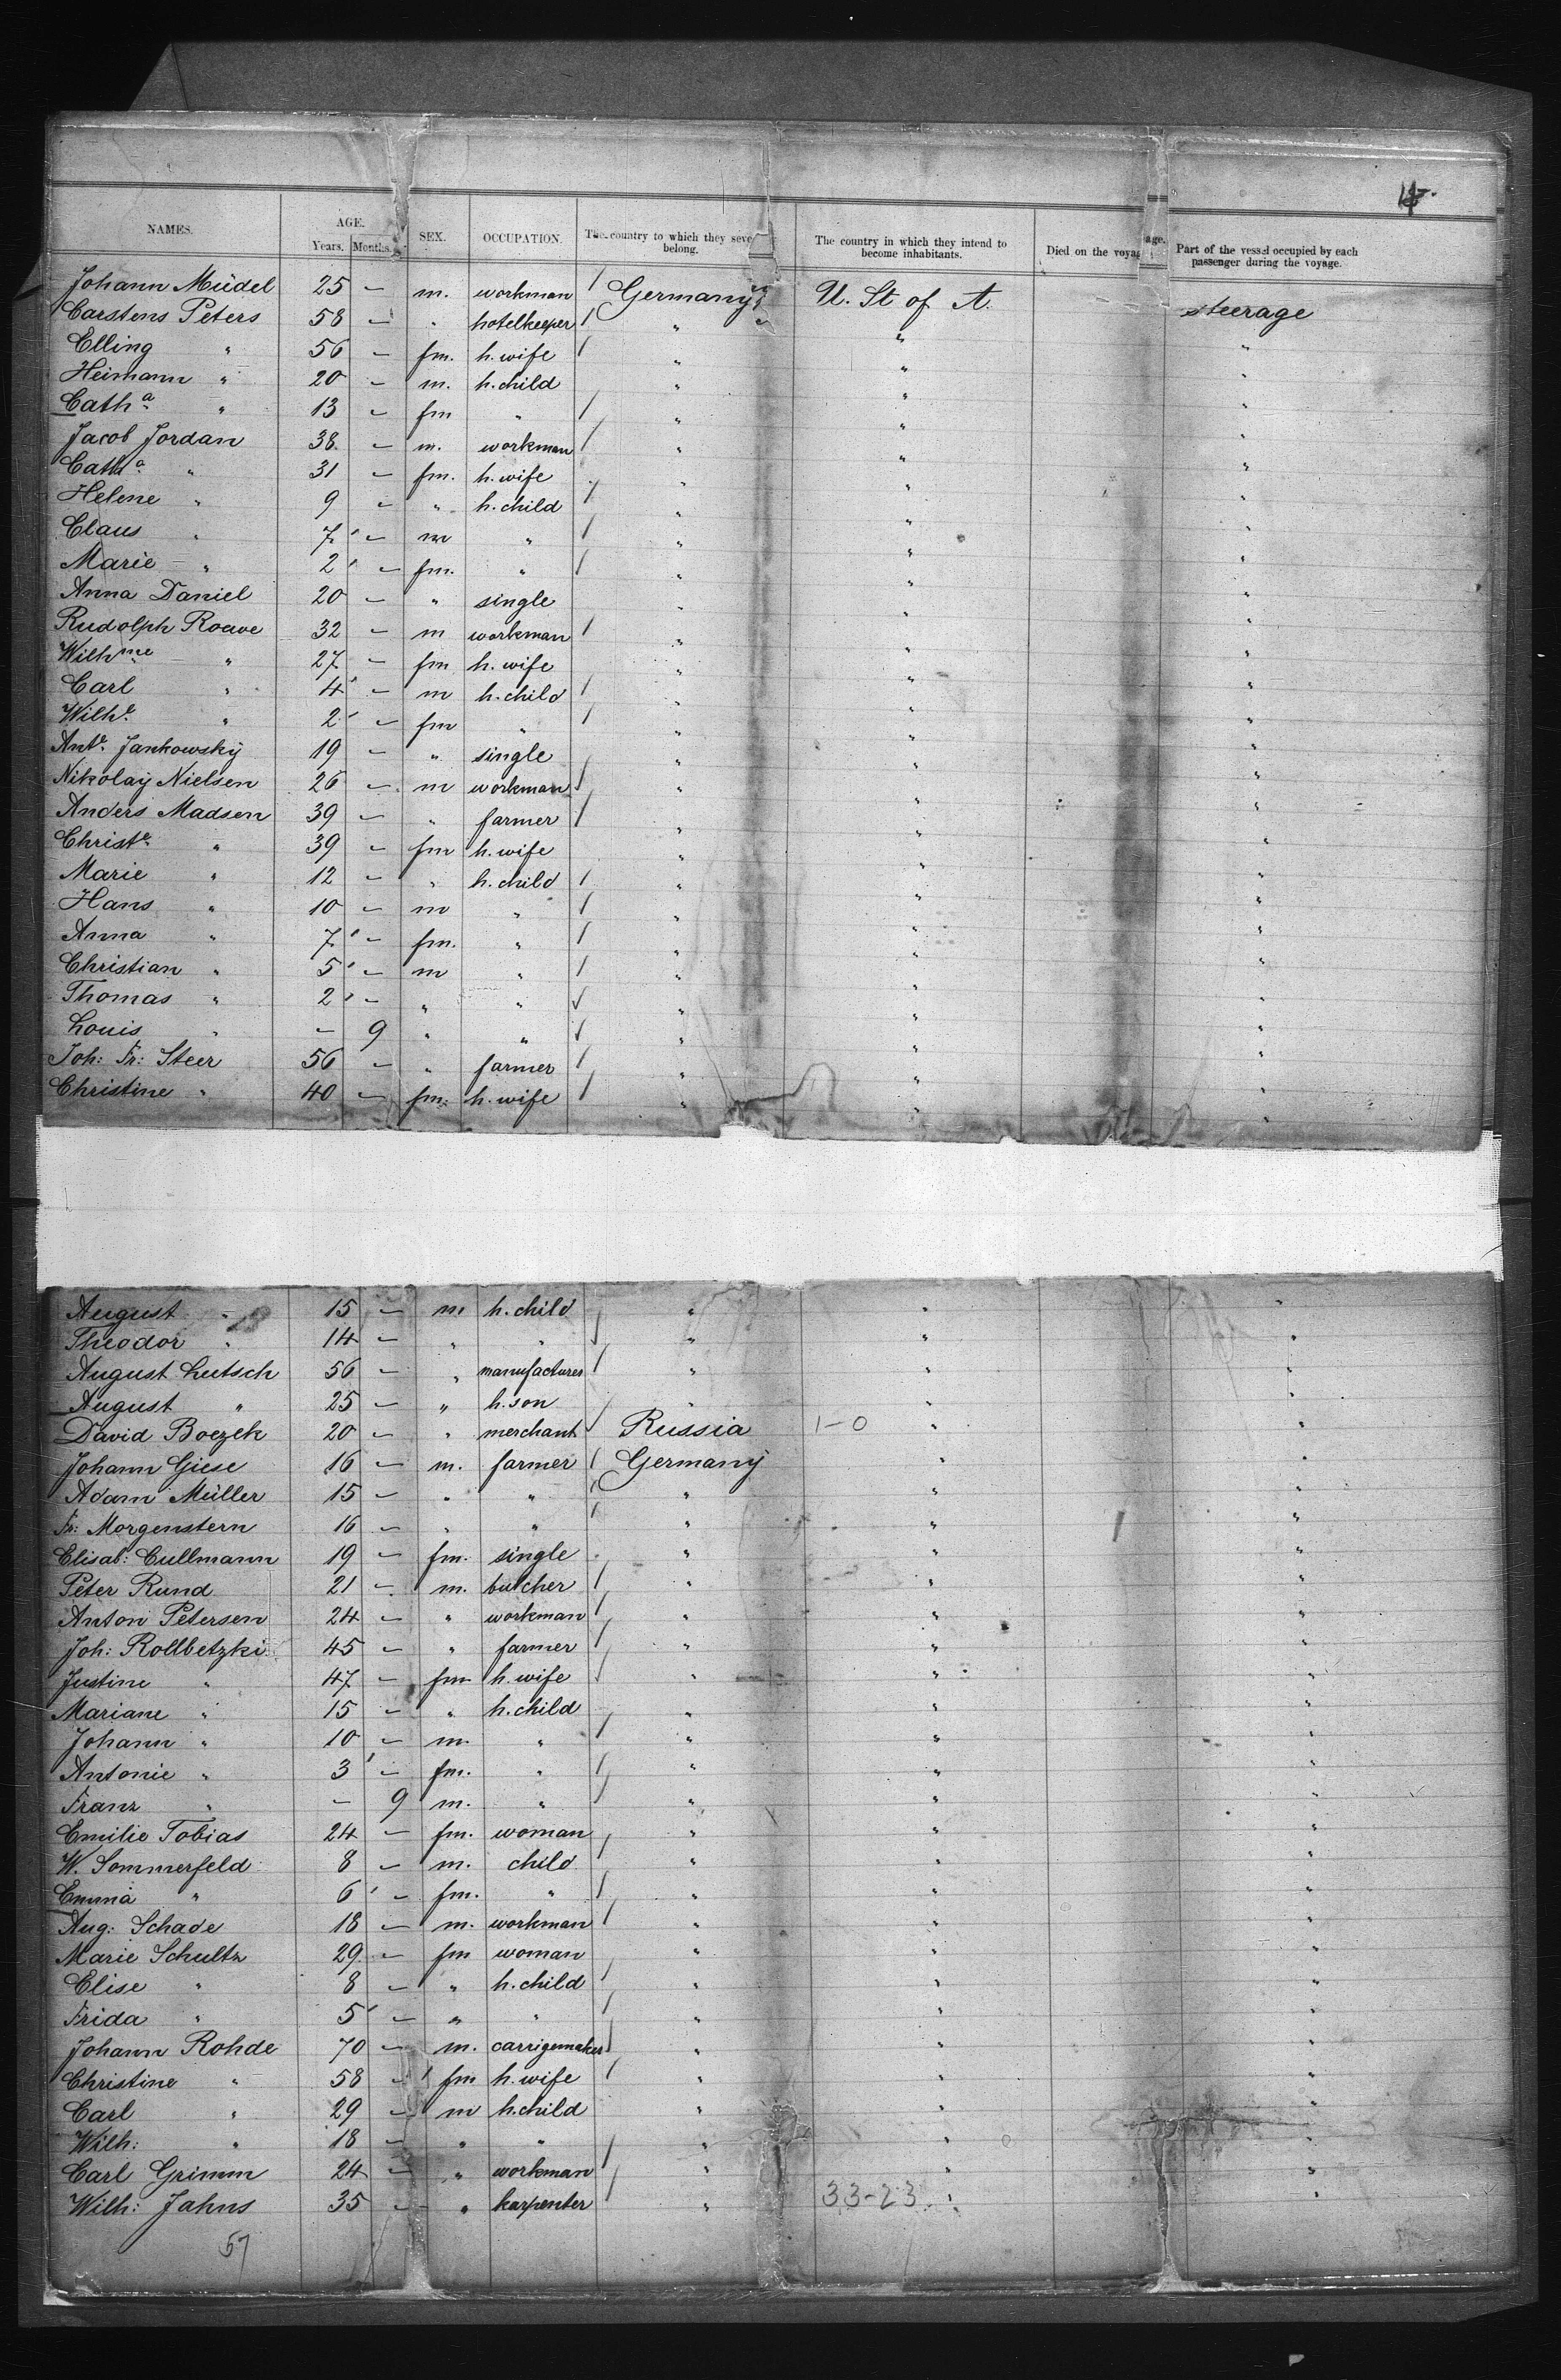 NAMES. AGE. Years. Months. SEX. OCCUPATION. The country to which they seve belong. The country in which they intend to become inhabitants. Died on the voyage. Part of the vessel occupied by each passenger during the voyage.
Johann Müdel 25 – m. workman Germany U. St of A. steerage
Carstens Peters 58 – " hotelkeeper " " "
Elling " 56 – fm. h. wife " " "
Heimann " 20 – m. h. child " " "
Cath.a " 13 – fm " " " "
Jacob Jordan 38 – m. workman " " "
Cath.a " 31 – fm. h. wife " " "
Helene " 9 – " h. child " " "
Claus " 7 – m " " " "
Marie " 2 – fm. " " " "
Anna Daniel 20 – " single " " "
Rudolph 32 – m workman " " "
Wilhme " 27 – fm h. wife " " "
Carl " 4 – m h. child " " "
Wilhe " 2 – fm " " " "
Ante. Jankowsky 19 – " single " " "
Nikolaÿ Nielsen 26 – m workman " " "
Anders Madsen 39 – " farmer " " "
Christe. " 39 – fm h. wife " " "
Marie " 12 – " h. child " " "
Hans " 10 – m " " " "
Anna " 7 – fm. " " " "
Christian " 5 – m " " " "
Thomas " 2 – " " " " "
Louis " – 9 " " " " "
Joh: Fr: Steer 56 – " farmer " " "
Christine " 40 – fm: h. wife " " "
August " 15 – m h. child " " "
Theodor " 14 – " " " " "
August Lutsch 56 – " manufacturer " " "
August " 25 – " h. son " " "
David Boczek 20 – " merchant Russia 1-0 " "
Johann Giese 16 – m. farmer Germany " "
Adam Müller 15 – " " " " "
Fr: Morgenstern 16 – " " " " "
Elisab: Cullmann 19 – fm. single " " "
Peter Rund 21 – m. butcher " " "
Anton Petersen 24 – " workman " " "
Joh: Rollbetzki 45 – " farmer " " "
Justine " 47 – fm h. wife " " "
Mariane " 15 – " h. child " " "
Johann " 10 – m. " " " "
Antonie " 3 – fm. " " " "
Franz " – 9 m. " " " "
Emilie Tobias 24 – fm. woman " " "
W. Sommerfeld 8 – m. child " " "
Emma " 6 – fm. " " " "
Aug: Schade 18 – m. workman " " "
Marie Schultz 29 – fm woman " " "
Elise " 8 – " h. child " " "
Frida " 5 – " " " " "
Johann Rohde 70 – m. carrigemaker " " "
Christine " 58 – fm h. wife " " "
Carl " 29 – m h. child " " "
Wilh: " 18 – " " " " "
Carl Grimm 24 – " workman " " "
Wilh: Jahns 35 – " karpenter " 33-23 " "
57